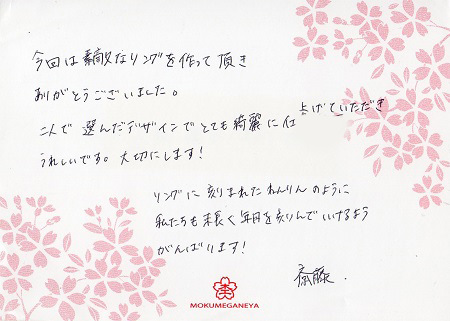 今回は素敵なリングを作って頂き
ありがとうございました。
二人で選んだデザインでとても綺麗に仕上げていただき
うれしいです。大切にします！
リングに刻まれたねんりんのように
私たちも末長く年月を刻んでいけるよう
がんばります！
斎藤.
MOKUMEGANEYA